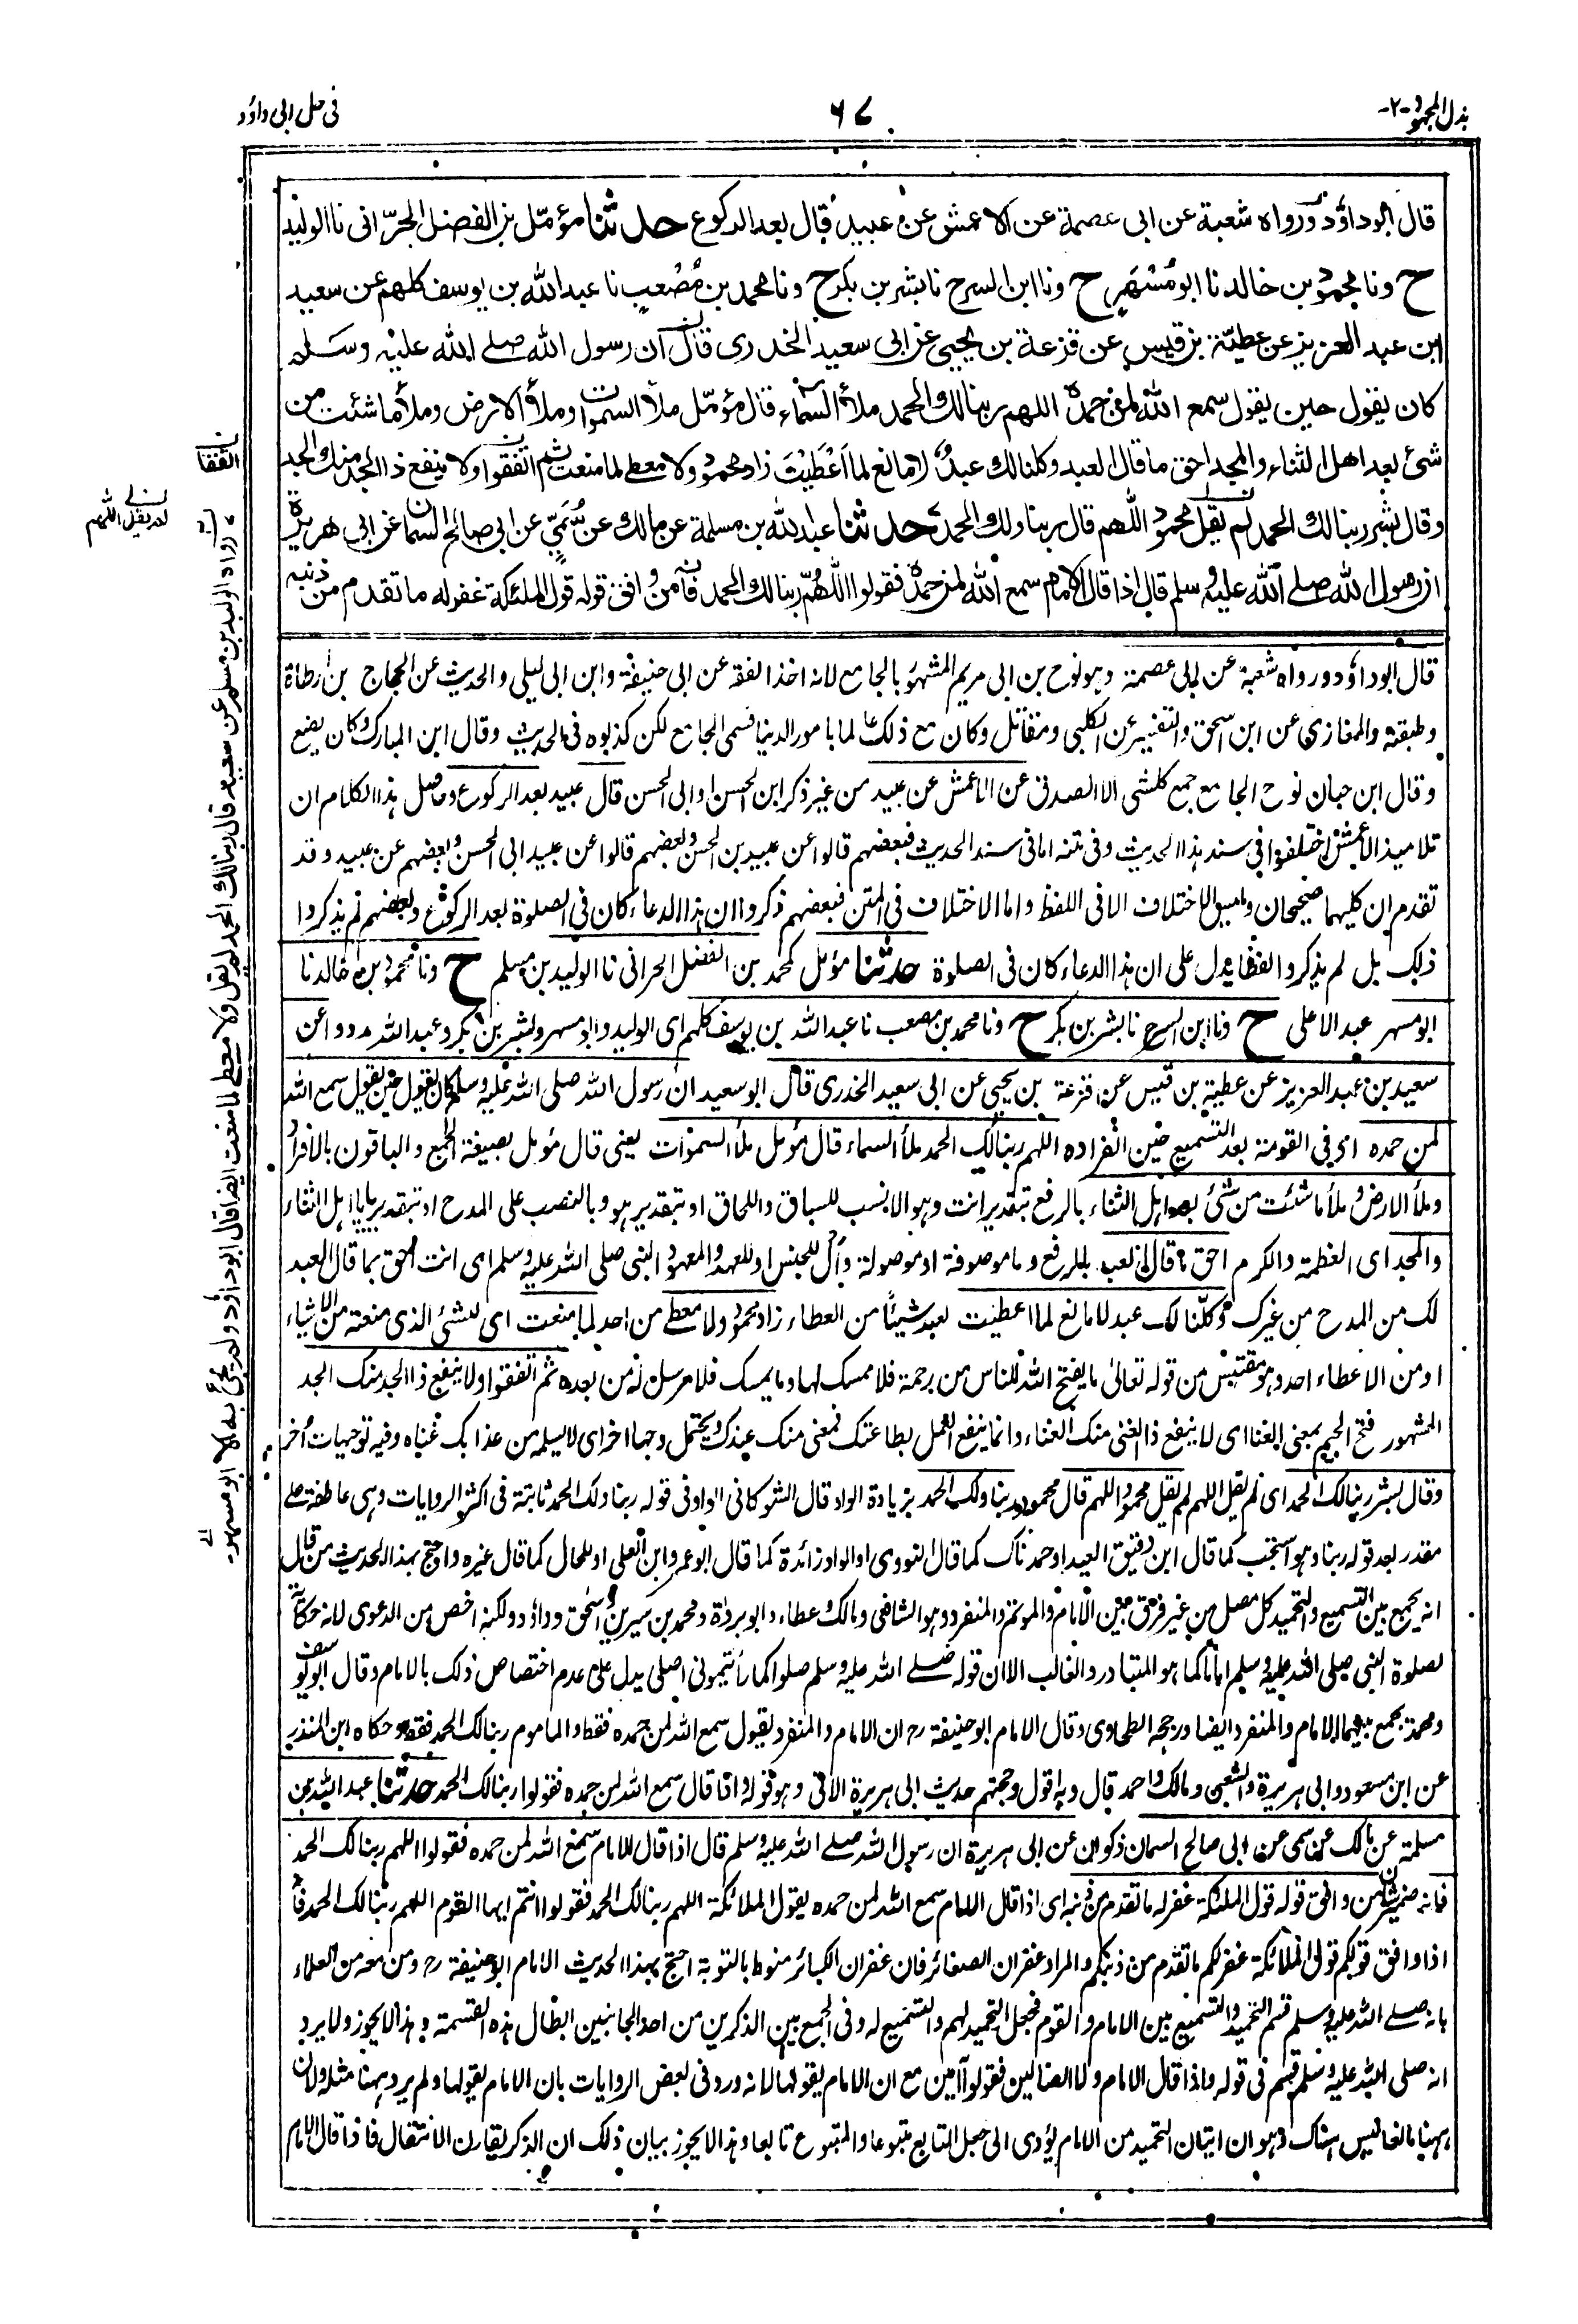 بذل المجهود -٢-
٦٧
فی حل ابی داؤد
قال ابو داؤد ورواه شعبة عن ابی عصمة عن الاعمش عن عبید قال بعد الرکوع حدثنا مؤمّل بن الفضل الحرّانی نا الولید
ح ونا محمود بن خالد نا ابو مُسْهَر ح ونا ابن السرح نا بشر بن بکر ح ونا محمد بن مُصْعب نا عبد الله بن یوسف کلهم عن سعید
ابن عبد العزیز عن عطیة بن قیس عن قزعة بن یحیی عن ابی سعید الخدری قال ان رسول الله صلے الله علیه وسلم
کان یقول حین یقول سمع الله لمن حمده اللهم ربنا لک الحمد ملأ السماء قال مؤمّل ملأ السموات وملأ الارض وملأ ما شئت من
شئ بعد اهل الثناء والمجد احق ما قال العبد وکلنا لک عبد لا مانع لما اَعْطَیْتَ زاد محمود ولا معطے لما منعت ثم اتفقوا ولا ینفع ذا الجد منک الجد
وقال بشر ربنا لک الحمد لم یقل محمود اللهم قال ربنا ولک الحمد حدثنا عبد الله بن مسلمة عن مالک عن سُمَیّ عن ابی صالح السمان عن ابی هریرة
ان رسول الله صلے الله علیه وسلم قال اذا قال الامام سمع الله لمن حمده فقولوا اللّٰهُمّ ربنا لک الحمد فانه من وافق قوله قول الملئکة غفر له ما تقدم من ذنبه
قال ابو داؤد ورواه شعبة عن ابی عصمة وہو نوح بن ابی مریم المشهور بالجامع لانه اخذ الفقه عن ابی حنیفة وابن ابی لیلی والحدیث عن الحجاج بن ارطاة
وطبقته والمغازی عن ابن اسحق والتفسیر عن الکلبی ومقاتل وکان مع ذلک عالما بامور الدنیا فسمی الجامع لکن کذبوه فی الحدیث وقال ابن المبارک کان یضع
وقال ابن حبان نوح الجامع جمع کل شئ الا الصدق عن الاعمش عن عبید من غیر ذکر ابن الحسن او ابی الحسن قال عبید بعد الرکوع وحاصل ہذا الکلام ان
تلامیذ الاعمش اختلفوا فی سند ہذا الحدیث وفی متنه اما فی سند الحدیث فبعضهم قالوا عن عبید بن الحسن وبعضهم قالوا عن عبید ابی الحسن وبعضهم عن عبید وقد
تقدم ان کلیهما صحیحان ولیس الاختلاف الا فی اللفظ واما الاختلاف فی المتن فبعضهم ذکروا ان ہذا الدعاء کان فی الصلوة بعد الرکوع وبعضهم لم یذکروا
ذلک بل لم یذکروا لفظا یدل علی ان ہذا الدعاء کان فی الصلوة حدثنا مؤمل کمحمد بن الفضل الحرانی نا الولید بن مسلم ح ونا محمود بن خالد نا
ابو مسهر عبد الاعلی ح ونا ابن السرح نا بشر بن بکر ح ونا محمد بن مصعب نا عبد الله بن یوسف کلهم ای الولید وابو مسهر وبشر بن بکر وعبد الله رووا عن
سعید بن عبد العزیز عن عطیة بن قیس عن قزعة بن یحیی عن ابی سعید الخدری قال ابو سعید ان رسول الله صلی الله علیه وسلم کان یقول حین یقول سمع الله
لمن حمده ای فی القومة بعد التسمیع حین انفراده اللهم ربنا لک الحمد ملأ السماء قال مؤمل ملأ السموات یعنی قال مؤمل بصیغة الجمع والباقون بالافراد
وملأ الارض وملأ ما شئت من شئ بعد اہل الثناء بالرفع بتقدیر انت وہو الانسب للسباق واللحاق او بتقدیر ہو وبالنصب علی المدح او بتقدیر یا اہل الثناء
والمجد ای العظمة والکرم احق ما قال العبد بالرفع وما موصوفة او موصولة وأل للجنس او للعهد والمعهود النبی صلی الله علیه وسلم ای انت احق بما قال العبد
لک من المدح من غیرک وکلّنا لک عبد لا مانع لما اعطیت لعبد شیئًا من العطاء زاد محمود ولا معطے من احد لما منعت ای للشئ الذی منعته من الاشیاء
او من الاعطاء احد وہو مقتبس من قوله تعالیٰ ما یفتح الله للناس من رحمة فلا ممسک لها وما یمسک فلا مرسل له من بعده ثم اتفقوا ولا ینفع ذا الجد منک الجد
المشهور فتح الجیم بمعنی الغنا ای لا ینفع ذا الغنی منک الغناء وانما ینفع العمل بطاعتک فمعنی منک عندک ویحتمل وجها اخر ای لا یسلمه من عذابک غناه وفیه توجیهات اُخر
وقال بشر ربنا لک الحمد ای لم یقل اللهم لم یقل محمود اللهم قال محمود ربنا ولک الحمد بزیادة الواو قال الشوکانی الواو فی قوله ربنا ولک الحمد ثابتة فی اکثر الروایات وہی عاطفة علے
مقدر بعد قوله ربنا وہو استجب کما قال ابن دقیق العید او حمدناک کما قال النووی او الواو زائدة کما قال ابو عمرو ابن العلی او للحال کما قال غیره واحتج بهذا الحدیث من قال
انه یجمع بین التسمیع والتحمید کل مصل من غیر فرق بین الامام والمؤتم والمنفرد وہو الشافعی ومالک وعطاء وابو بردة ومحمد بن سیرین واسحٰق وداؤد ولکنه اخص من الدعوی لانه حکایة
لصلوة النبی صلی الله علیه وسلم اماماً کما ہو المتبادر والغالب الا ان قوله صلے الله علیه وسلم صلوا کما رأیتمونی اصلی یدل علی عدم اختصاص ذلک بالامام وقال ابو یوسف
ومحمد یجمع بینهما الامام والمنفرد ایضا ورجحه الطحاوی وقال الامام ابو حنیفة رح ان الامام والمنفرد یقول سمع الله لمن حمده فقط والماموم ربنا لک الحمد فقط وحکاه ابن المنذر
عن ابن مسعود وابی ہریرة والشعبی ومالک واحمد قال وبه اقول وحجتهم حدیث ابی ہریرة الآتی وہو قوله واذا قال سمع الله لمن حمده فقولوا ربنا لک الحمد حدثنا عبد الله بن
مسلمة عن مالک عن سمی عن ابی صالح السمان ذکوان عن ابی ہریرة ان رسول الله صلے الله علیه وسلم قال اذا قال الامام سمع الله لمن حمده فقولوا اللهم ربنا لک الحمد
فانه ضمیر شان من وافق قوله قول الملئکة غفر له ما تقدم من ذنبه ای اذا قال الامام سمع الله لمن حمده یقول الملائکة اللهم ربنا لک الحمد فقولوا انتم ایها القوم اللهم ربنا لک الحمد فانه
اذا وافق قولکم قول الملائکة غفر لکم ما تقدم من ذنبکم والمراد غفران الصغائر فان غفران الکبائر منوط بالتوبة احتج بهذا الحدیث الامام ابو حنیفة رح ومن معه من العلماء
بانه صلے الله علیه وسلم قسم التحمید والتسمیع بین الامام والقوم فجعل التحمید لهم والتسمیع له وفی الجمع بین الذکرین من احد الجانبین ابطال ہذه القسمة وہذا لا یجوز ولا یرد
انه صلی الله علیه وسلم قسم فی قوله واذا قال الامام ولا الضالین فقولوا آمین مع ان الامام یقولها لانه ورد فی بعض الروایات بان الامام یقولها ولم یرد ہهنا مثله ولان
ہهنا مانعا لیس ہناک وہو ان اتیان التحمید من الامام یؤدی الی جعل التابع متبوعا والمتبوع تابعا وہذا لا یجوز بیان ذلک ان الذکر یقارن الانتقال فاذا قال الامام
لم یقل اللهم
رواه الولید بن مسلم عن سعید قال ربنا لک الحمد لم یقل ولا معطے لما منعت ایضا قال ابو داؤد ولم یجئ به الا ابو مسهر